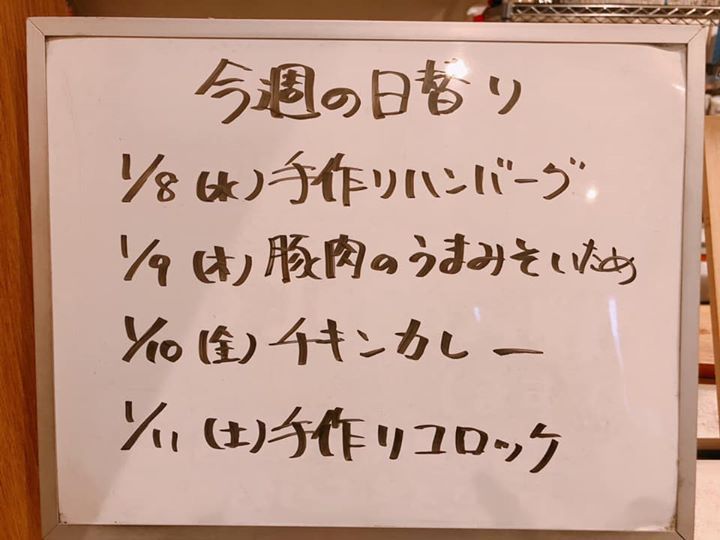 今週の日替り
1/8(水)手作りハンバーグ
1/9(木)豚肉のうまみそいため
1/10(金)チキンカレー
1/11(土)手作りコロッケ